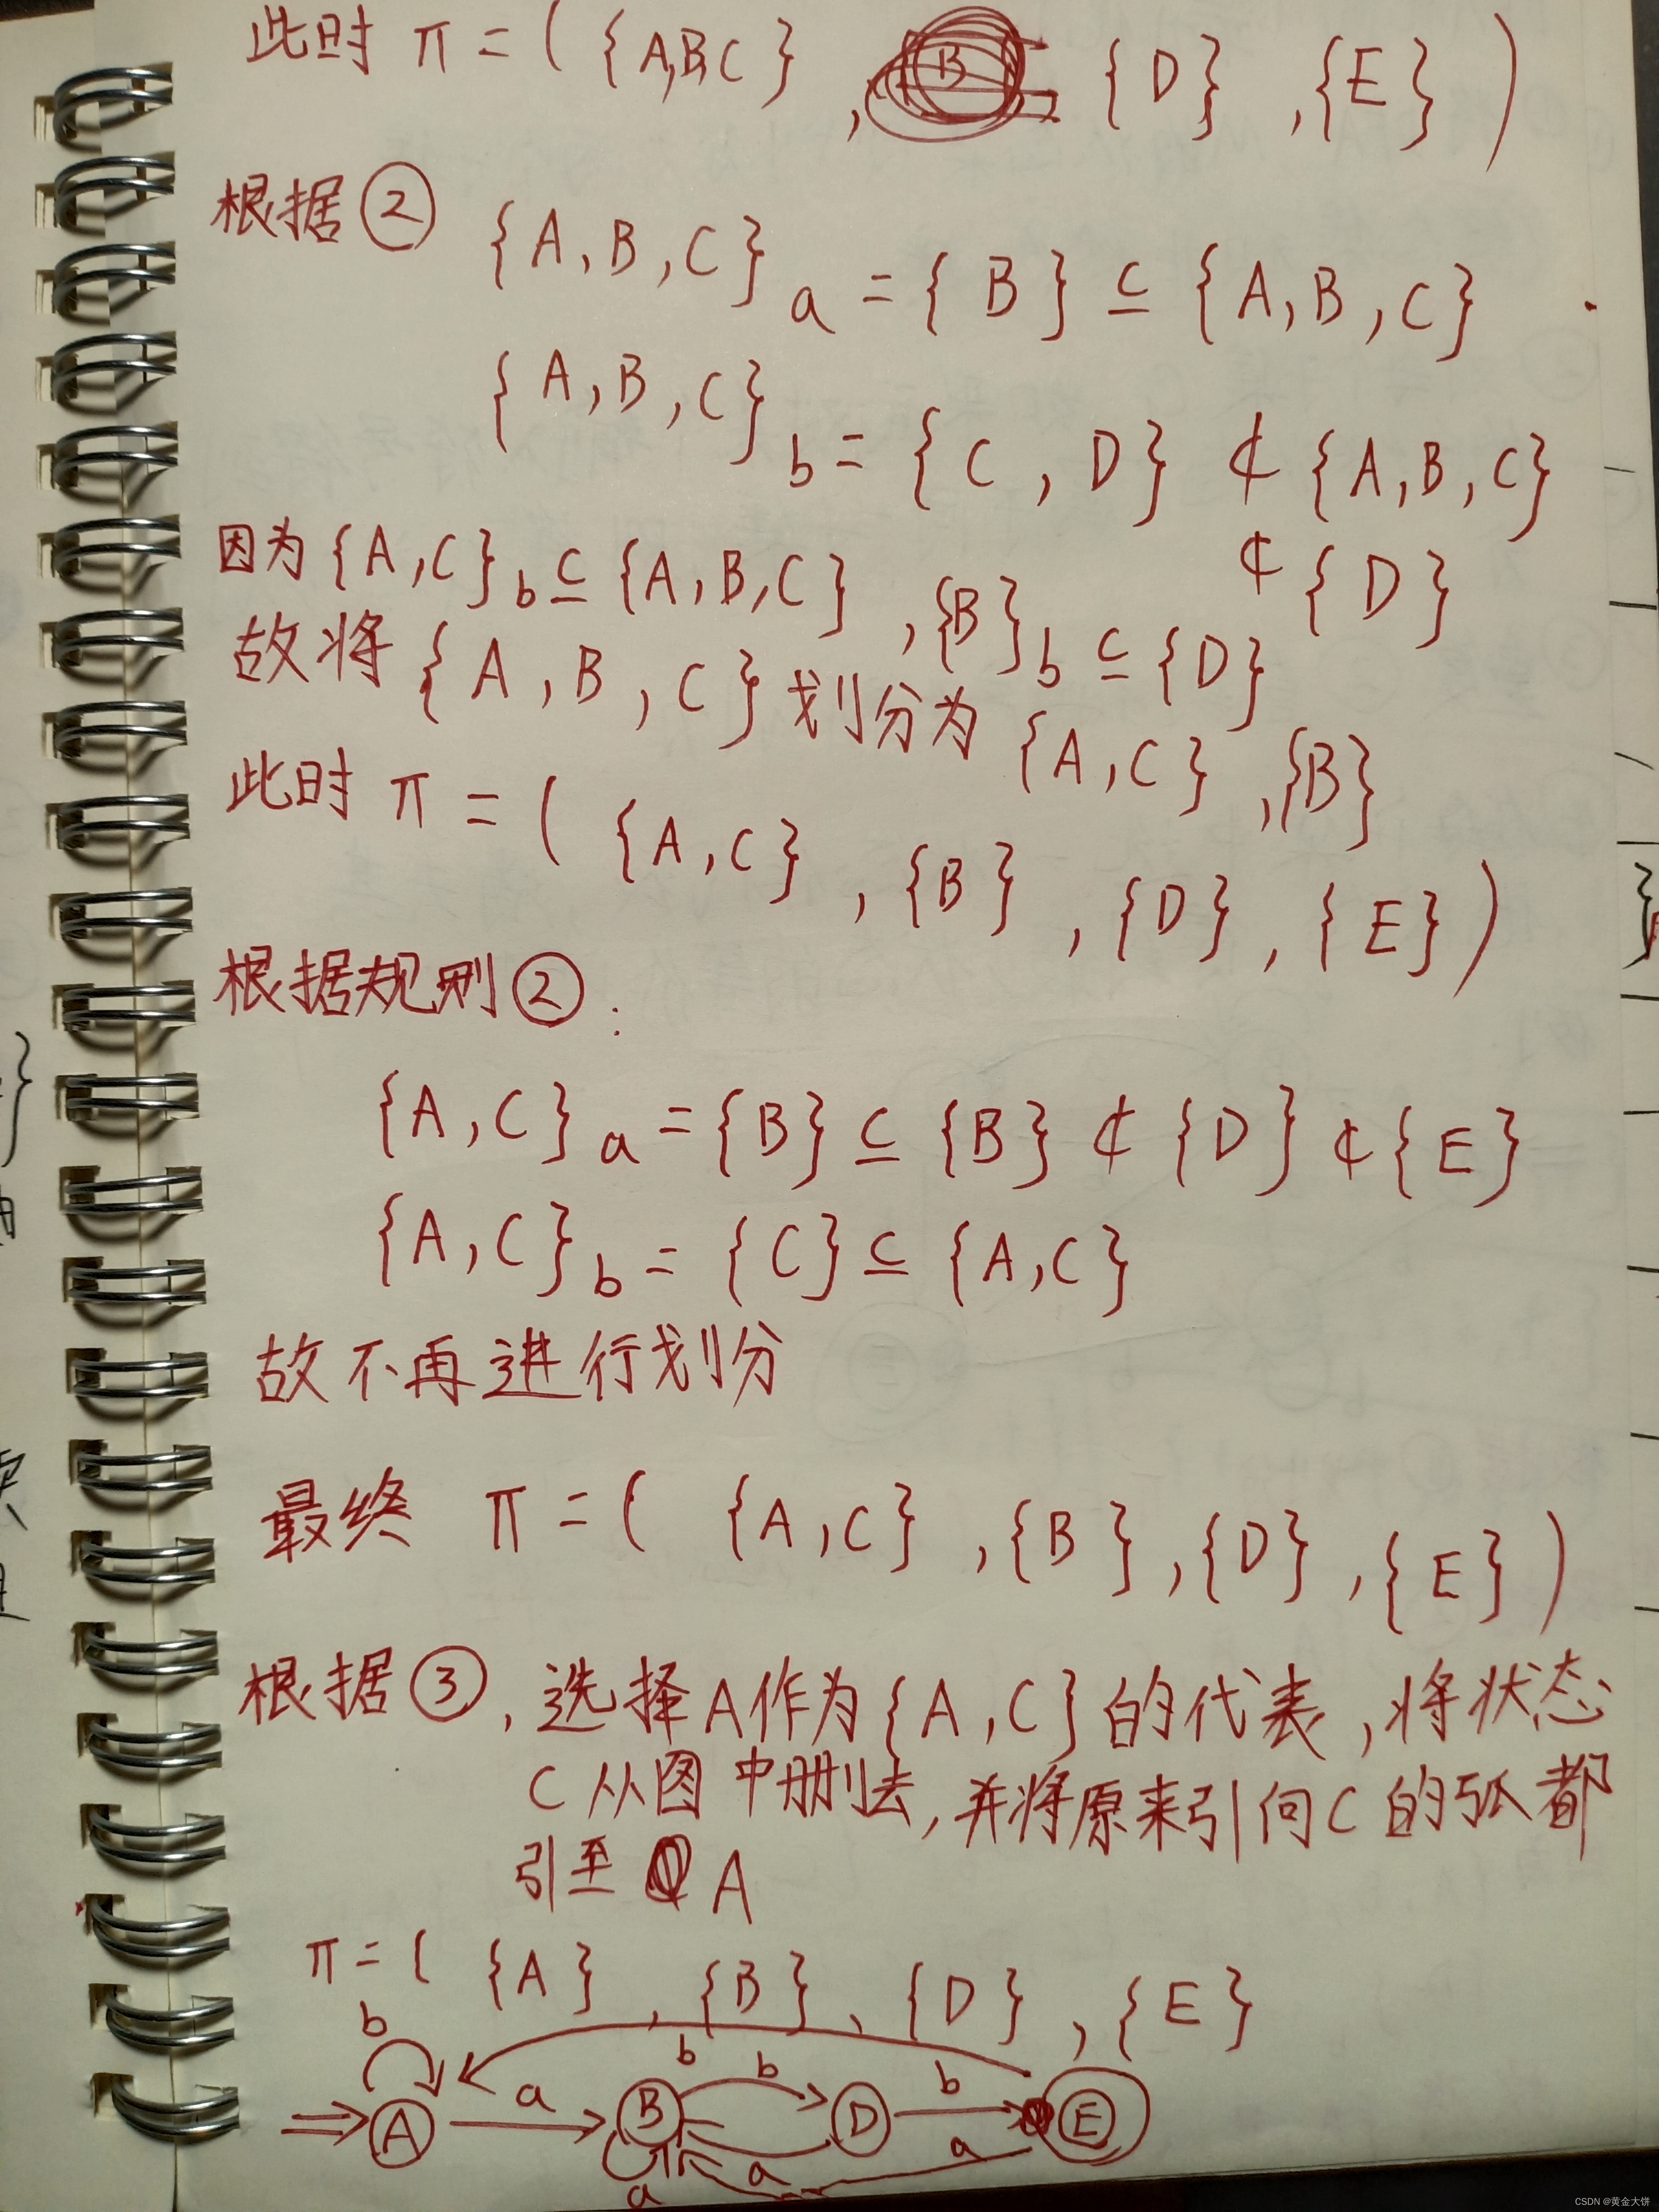 此时 π = ( {A,B,C} , {D} , {E} )
根据② {A,B,C}a = {B} ⊆ {A,B,C}
{A,B,C}b = {C,D} ⊄ {A,B,C}
⊄ {D}
因为{A,C}b ⊆ {A,B,C} , {B}b ⊆ {D}
故将{A,B,C}划分为{A,C} , {B}
此时 π = ( {A,C} , {B} , {D} , {E} )
根据规则②:
{A,C}a = {B} ⊆ {B} ⊄ {D} ⊄ {E}
{A,C}b = {C} ⊆ {A,C}
故不再进行划分
最终 π = ( {A,C} , {B} , {D} , {E} )
根据③, 选择A作为{A,C}的代表, 将状态
C从图中删去, 并将原来引向C的弧都
引至 A
π = ( {A} , {B} , {D} , {E}
b
b
a
b
b
A
B
D
E
a
a
a
CSDN @黄金大饼